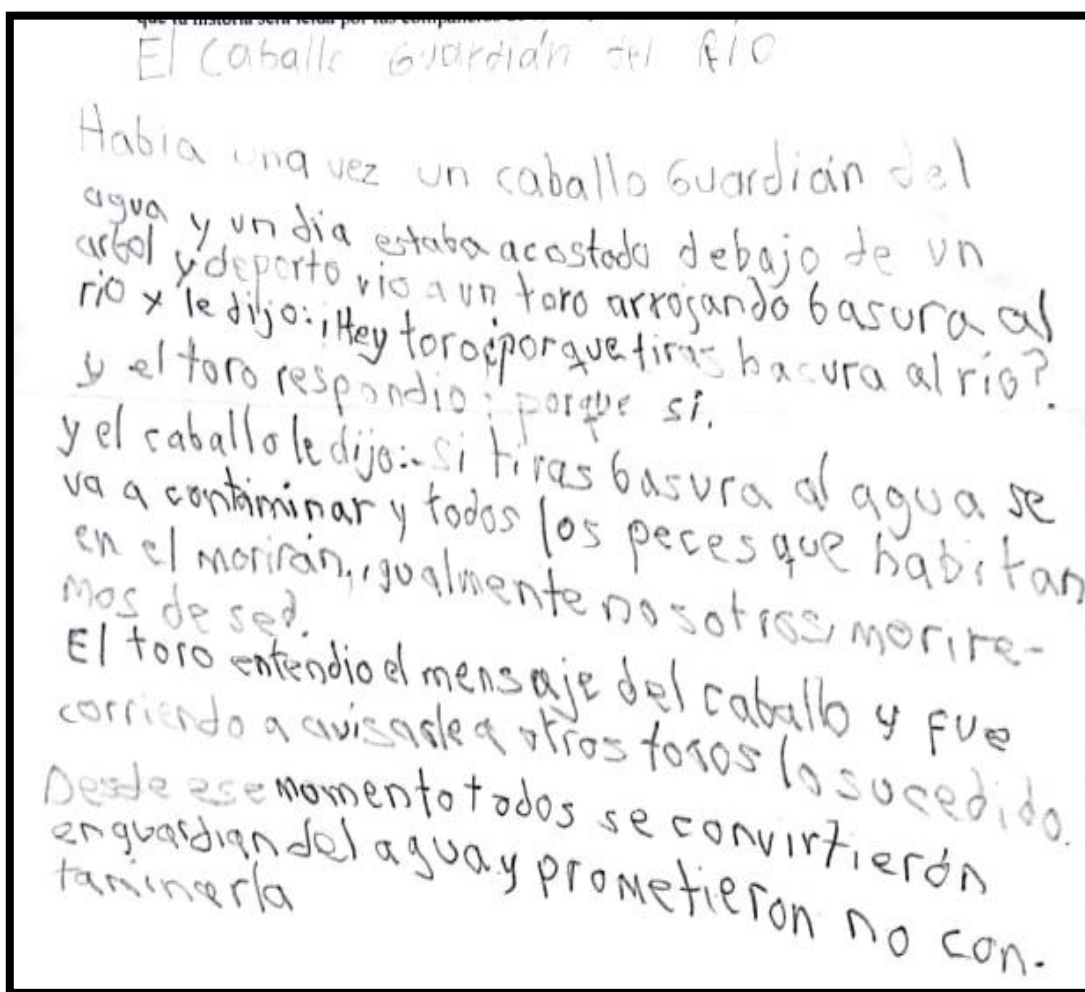 que tu historia será leída por tus compañeros de
El Caballo Guardián del RÍO
Habia una vez un caballo Guardián del
agua y un dia estaba acostado debajo de un
arbol y deporto vio a un toro arrojando basura al
río y le dijo: ¡Hey toro ¿porque tiras bacura al río?
y el toro respondio: porque si.
y el caballo le dijo:- Si tiras basura al agua se
va a contiminar y todos los peces que habitan
en el morirán, igualmente nosotros morire-
mos de sed.
El toro entendio el mensaje del caballo y fue
corriendo a avisarle a otros toros lo sucedido.
Desde ese momento todos se convirtierón
en guardian del agua y prometieron no con-
taminarla